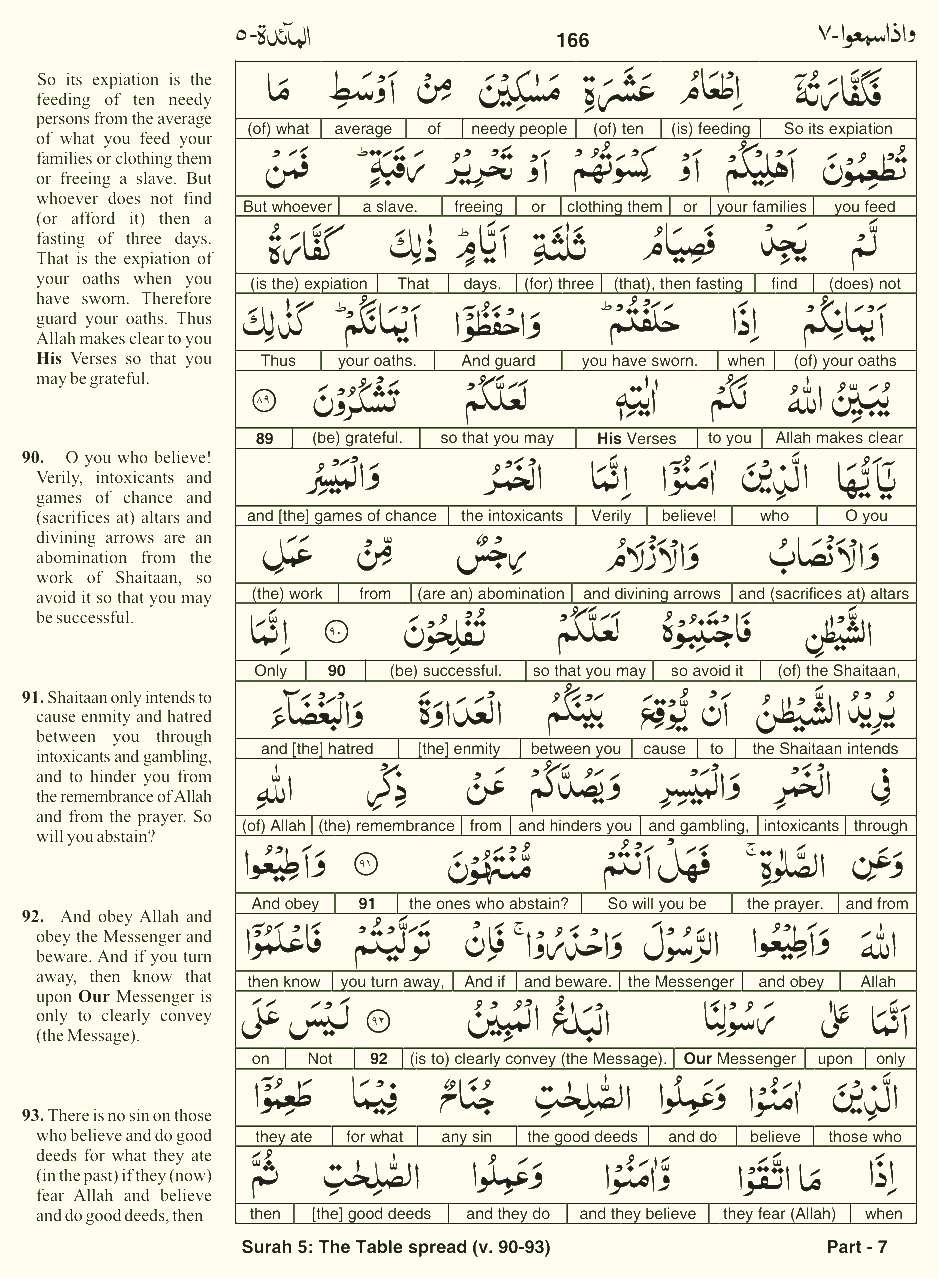 المآئدة-٥ 166 واذاسمعوا-٧
So its expiation is the
feeding of ten needy
persons from the average
of what you feed your
families or clothing them
or freeing a slave. But
whoever does not find
(or afford it) then a
fasting of three days.
That is the expiation of
your oaths when you
have sworn. Therefore
guard your oaths. Thus
Allah makes clear to you
His Verses so that you
may be grateful.
90. O you who believe!
Verily, intoxicants and
games of chance and
(sacrifices at) altars and
divining arrows are an
abomination from the
work of Shaitaan, so
avoid it so that you may
be successful.
91. Shaitaan only intends to
cause enmity and hatred
between you through
intoxicants and gambling,
and to hinder you from
the remembrance of Allah
and from the prayer. So
will you abstain?
92. And obey Allah and
obey the Messenger and
beware. And if you turn
away, then know that
upon Our Messenger is
only to clearly convey
(the Message).
93. There is no sin on those
who believe and do good
deeds for what they ate
(in the past) if they (now)
fear Allah and believe
and do good deeds, then
فَكَفَّارَتُهٗۤ اِطْعَامُ عَشَرَةِ مَسٰكِيْنَ مِنْ اَوْسَطِ مَا
(of) what | average | of | needy people | (of) ten | (is) feeding | So its expiation
تُطْعِمُوْنَ اَهْلِيْكُمْ اَوْ كِسْوَتُهُمْ اَوْ تَحْرِيْرُ رَقَبَةٍ ؕ فَمَنْ
But whoever | a slave. | freeing | or | clothing them | or | your families | you feed
لَّمْ يَجِدْ فَصِيَامُ ثَلٰثَةِ اَيَّامٍ ؕ ذٰلِكَ كَفَّارَةُ
(is the) expiation | That | days. | (for) three | (that), then fasting | find | (does) not
اَيْمَانِكُمْ اِذَا حَلَفْتُمْ ؕ وَاحْفَظُوْۤا اَيْمَانَكُمْ ؕ كَذٰلِكَ
Thus | your oaths. | And guard | you have sworn. | when | (of) your oaths
يُبَيِّنُ اللّٰهُ لَكُمْ اٰيٰتِهٖ لَعَلَّكُمْ تَشْكُرُوْنَ ٨٩
89 | (be) grateful. | so that you may | His Verses | to you | Allah makes clear
يٰۤاَيُّهَا الَّذِيْنَ اٰمَنُوْۤا اِنَّمَا الْخَمْرُ وَالْمَيْسِرُ
and [the] games of chance | the intoxicants | Verily | believe! | who | O you
وَالْاَنْصَابُ وَالْاَزْلَامُ رِجْسٌ مِّنْ عَمَلِ
(the) work | from | (are an) abomination | and divining arrows | and (sacrifices at) altars
الشَّيْطٰنِ فَاجْتَنِبُوْهُ لَعَلَّكُمْ تُفْلِحُوْنَ ٩٠ اِنَّمَا
Only | 90 | (be) successful. | so that you may | so avoid it | (of) the Shaitaan,
يُرِيْدُ الشَّيْطٰنُ اَنْ يُّوْقِعَ بَيْنَكُمُ الْعَدَاوَةَ وَالْبَغْضَآءَ
and [the] hatred | [the] enmity | between you | cause | to | the Shaitaan intends
فِى الْخَمْرِ وَالْمَيْسِرِ وَيَصُدَّكُمْ عَنْ ذِكْرِ اللّٰهِ
(of) Allah | (the) remembrance | from | and hinders you | and gambling, | intoxicants | through
وَعَنِ الصَّلٰوةِ ۚ فَهَلْ اَنْتُمْ مُّنْتَهُوْنَ ٩١ وَاَطِيْعُوا
And obey | 91 | the ones who abstain? | So will you be | the prayer. | and from
اللّٰهَ وَاَطِيْعُوا الرَّسُوْلَ وَاحْذَرُوْا ۚ فَاِنْ تَوَلَّيْتُمْ فَاعْلَمُوْۤا
then know | you turn away, | And if | and beware. | the Messenger | and obey | Allah
اَنَّمَا عَلٰى رَسُوْلِنَا الْبَلٰغُ الْمُبِيْنُ ٩٢ لَيْسَ عَلَى
on | Not | 92 | (is to) clearly convey (the Message). | Our Messenger | upon | only
الَّذِيْنَ اٰمَنُوْا وَعَمِلُوا الصّٰلِحٰتِ جُنَاحٌ فِيْمَا طَعِمُوْۤا
they ate | for what | any sin | the good deeds | and do | believe | those who
اِذَا مَا اتَّقَوْا وَّاٰمَنُوْا وَعَمِلُوا الصّٰلِحٰتِ ثُمَّ
then | [the] good deeds | and they do | and they believe | they fear (Allah) | when
Surah 5: The Table spread (v. 90-93) Part - 7